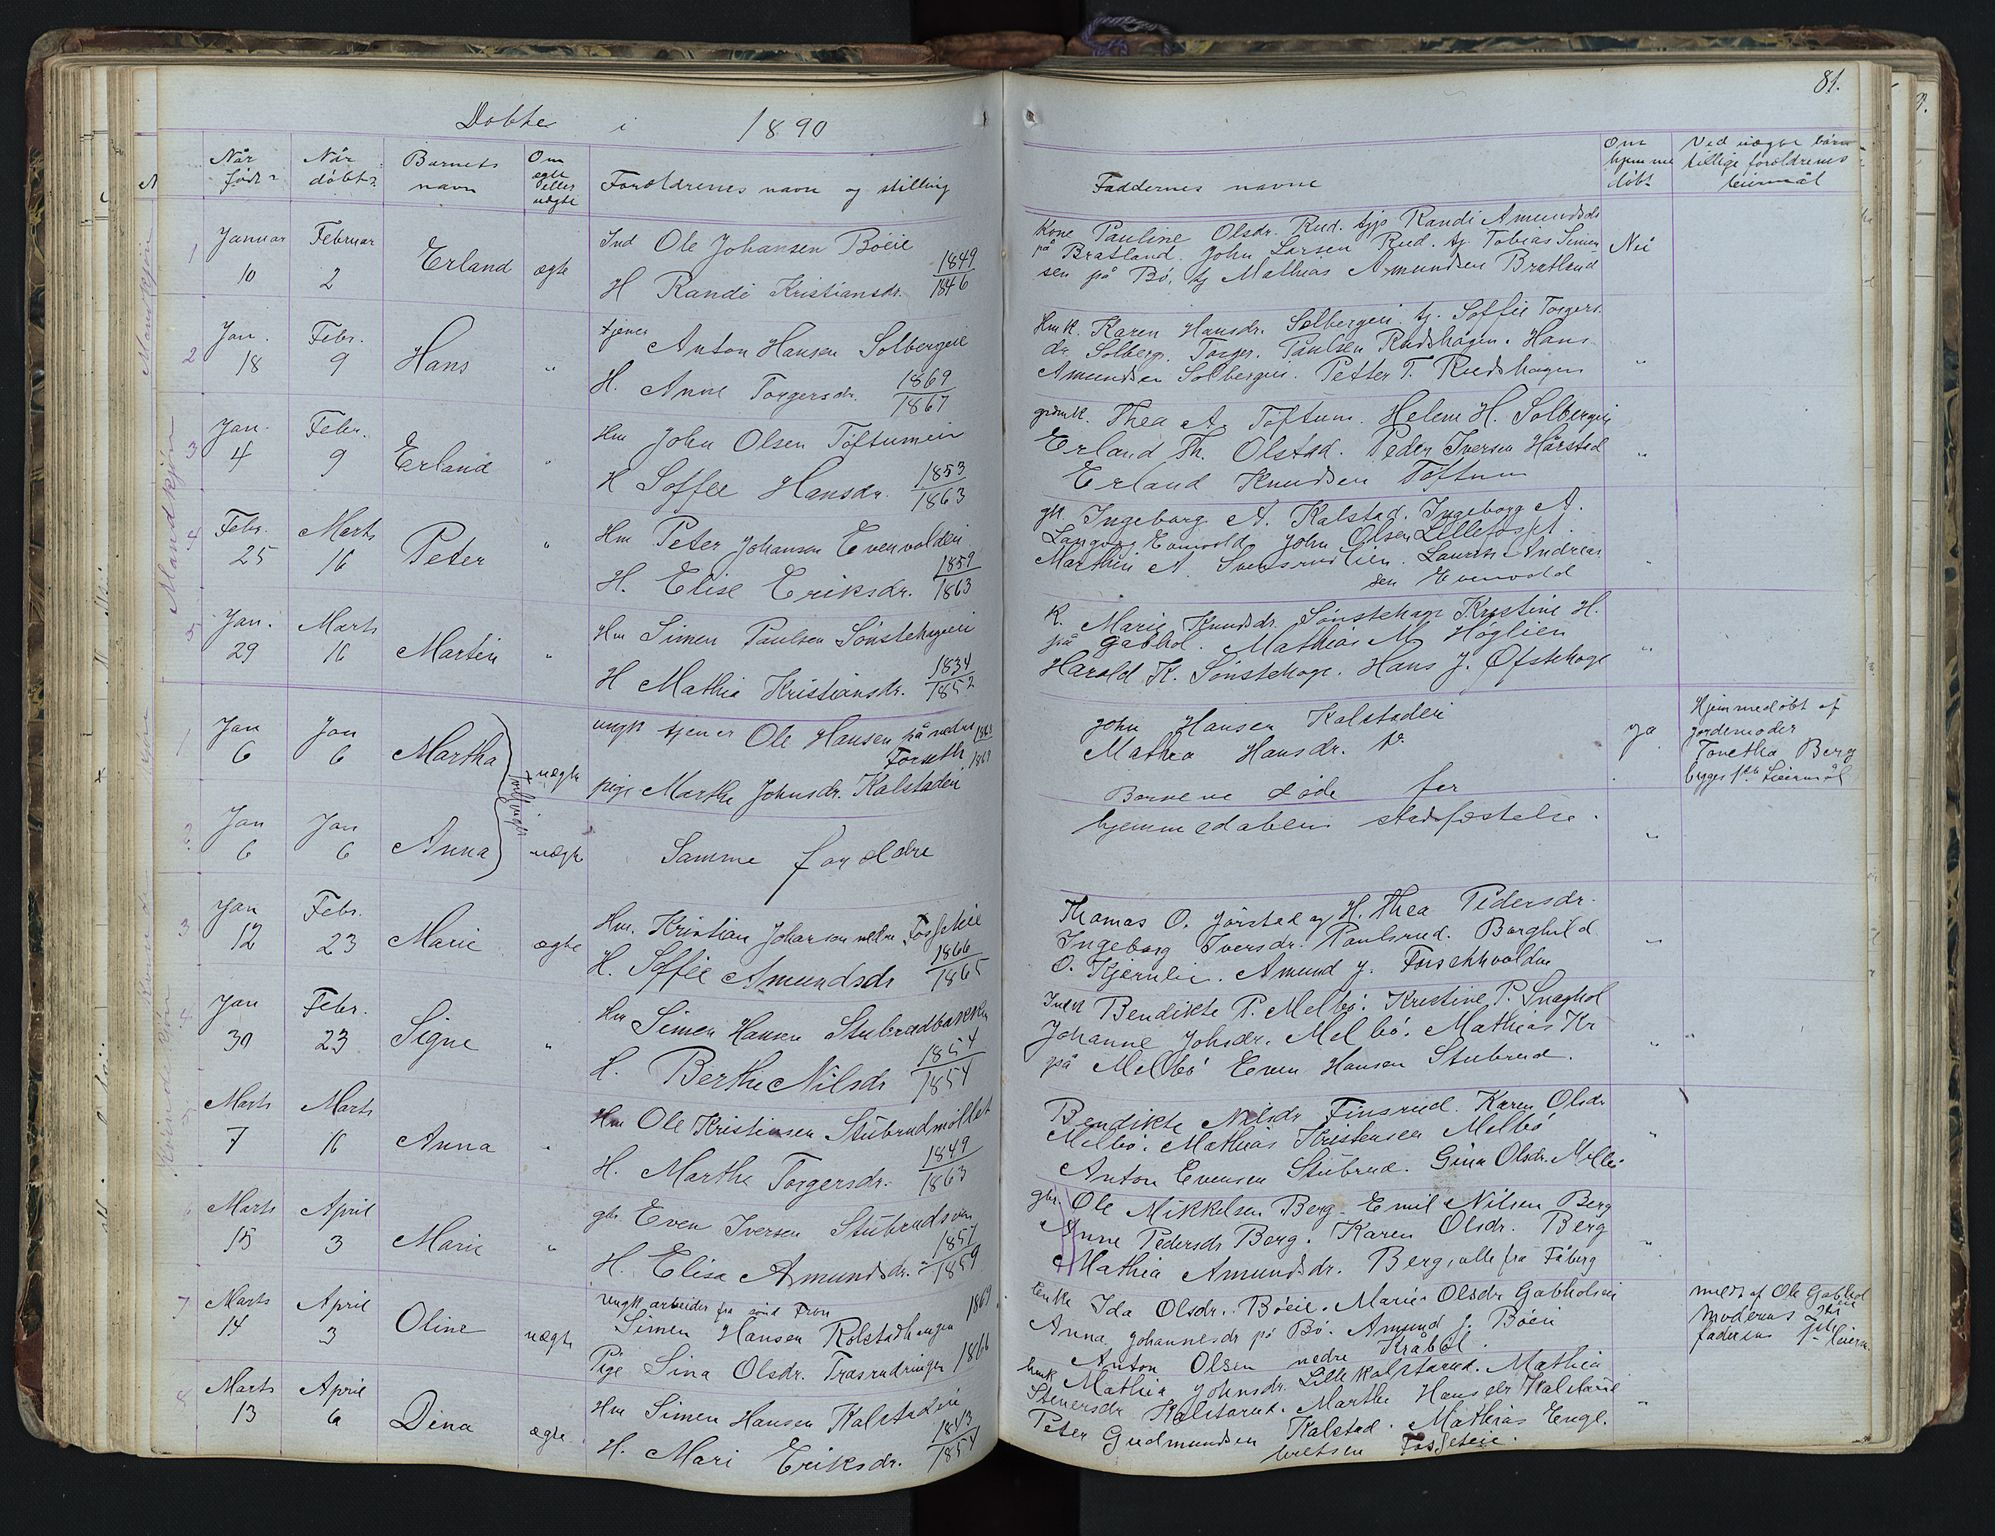 Døbte i 1890
81.
Når født?
Når døbt?
Barnets navn
Om ægte eller uægte
Forældrenes navn og stilling
Faddernes navne
Om hjemme døbt
Ved uægte børn tillige forældrenes leiermål
Mandkjøn
1 Januar 10 Februar 2 Erland ægte
Ind Ole Johansen Böeie 1849
H Randi Kristiansdr. 1846
Kone Pauline Olsdr. Rud. Randi Amundsdr
på Bratland. John Larsen Rud. tj. Tobias Simen
sen på Bö, tj Mathias Amundsen Bratland
Nei
2 Jan. 18 Febr. 9 Hans "
tjener Anton Hansen Solbergeie 1869
H. Anne Torgersdr. 1867
Hmk. Karen Hansdr. Solbergeie tj. Soffie Torgers
dr. Solberg. Torger Paulsen Rudshagen. Hans
Amundsen Solbergeie. Petter T. Rudshagen
"
3 Jan. 4 Febr. 9 Erland "
Hm John Olsen Toftumeie 1853
H Soffie Hansdr. 1863
grdmk. Thea A. Toftum. Helene H. Solbergeie
Erland Th. Olstad. Peder Iversen Hårstad
Erland Knudsen Toftum
"
4 Febr. 25 Marts 16 Peter "
Hm Peter Johansen Evenvoldeie 1859
H. Elise Eriksdr. 1863
gk. Ingeborg A. Kalstad. Ingeborg A.
Evenvold John Olsen Lillefosset.
Marthin A. Svensrudlien. Laurits Andrias
sen Evenvold
"
5 Jan. 29 Marts 16 Martin "
Hm Simen Paulsen Sönstehageeie 1834
H Mathia Kristiansdr. 1852
K. Marie Knudsdr. Sönstehage Kristine H.
på Gabhol. Mathias M Höglien
Harold K. Sönstehage. Hans J. Öfstehage
"
Kvindekjön
1 Jan 6 Jan 6 Martha uægte
Tvillinger
ungk tjener Ole Hansen på nedre Forseth
pige Marthe Johnsdr. Kalstadeie
John Hansen Kalstadeie
Mathea Hansdr. do
ja
Hjemmedøbt af
jordemoder
Tonetha Berg
begges 1ste Leiermål
2 Jan 6 Jan 6 Anna uægte
Samme forældre
Børnene døde før
hjemmedåbens stadfæstelse.
"
3 Jan 12 Febr. 23 Marie ægte
Hm. Kristian Johansen nedre Fossjeie 1866
H. Soffie Amundsdr 1865
Thomas O. Jörstad og H. Thea Pedersdr.
Ingeborg Iversdr. Paulsrud. Borghild
O. Kjernlie. Amund J. Forsethvolden
"
4 Jan 30 Febr. 23 Signe "
Hm Simen Hansen Stubrudbakken 1854
H. Berthe Nilsdr 1854
Indk Bendikte P. Melbö. Kristine P. Snaghol
Johanne Johsdr. Melbö. Mathias Kr
på Melbö Even Hansen Stubrud.
"
5 Marts 7 Marts 16 Anna "
Hm Ole Kristiansen Stubrudmöllet 1849
H. Marthe Torgersdr. 1863
Bendikte Nilsdr Finsrud. Karen Olsdr
Melbö. Mathias Kristensen Melbö
Anton Evensen Stubrud. Gina Olsdr. Melbö
"
6 Marts 15 April 3 Marie "
gbr Even Iversen 1857
H. Elisa Amundsdr. 1859
gbr. Ole Mikkelsen Berg. Emil Nilsen Berg
Anne Pedersdr Berg. Karen Olsdr. Berg
Mathia Amundsdr. Berg, alle fra Fåberg
"
7 Marts 14 April 3 Oline uægte
Ungk arbeider fra Fron 1869
Simen Hansen Rolstadhaugen
Pige Sina Olsdr. Trasrudringen 1866
Enke Ida Olsdr. Böeie. Marie Olsdr Gabholeie
Anna Johannesdr på Bö. Amund J. Böeie
Anton Olsen nedre Kråböl.
meldt af Ole Gabhol
moderens
faderens 1ste leierm.
8 Marts 13 April 6 Dina ægte
Hm Simen Hansen Kalstadeie 1843
H. Mari Eriksdr. 1854
hmk Mathia Johnsdr. Lillekalstarud. Mathia
Steversdr Kalstarud. Marthe Hansdr Kalstadeie
Peter Gudmundsen Kalstad. Mathias Enge.
bretsen Fossjeie.
"